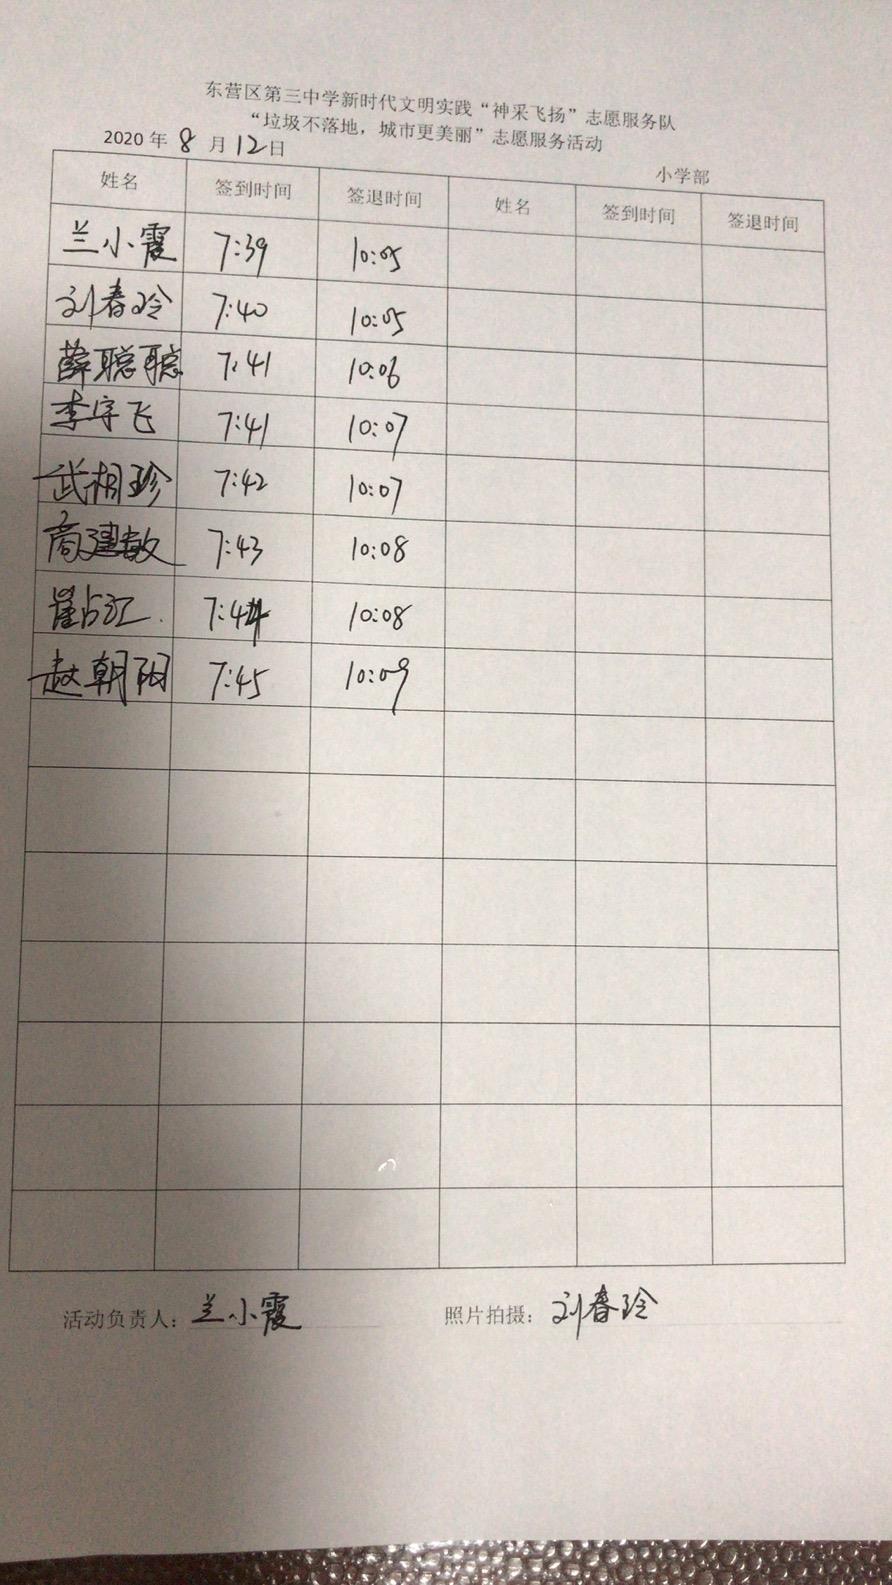 东营区第三中学新时代文明实践“神采飞扬”志愿服务队
“垃圾不落地，城市更美丽”志愿服务活动
2020 年 8 月 12日
小学部
姓名 签到时间 签退时间 姓名 签到时间 签退时间
兰小霞 7:39 10:05
刘春玲 7:40 10:05
薛聪聪 7:41 10:06
李宇飞 7:41 10:07
武相珍 7:42 10:07
商建敏 7:43 10:08
崔占江 7:44 10:08
赵朝阳 7:45 10:09
活动负责人：兰小霞 照片拍摄：刘春玲